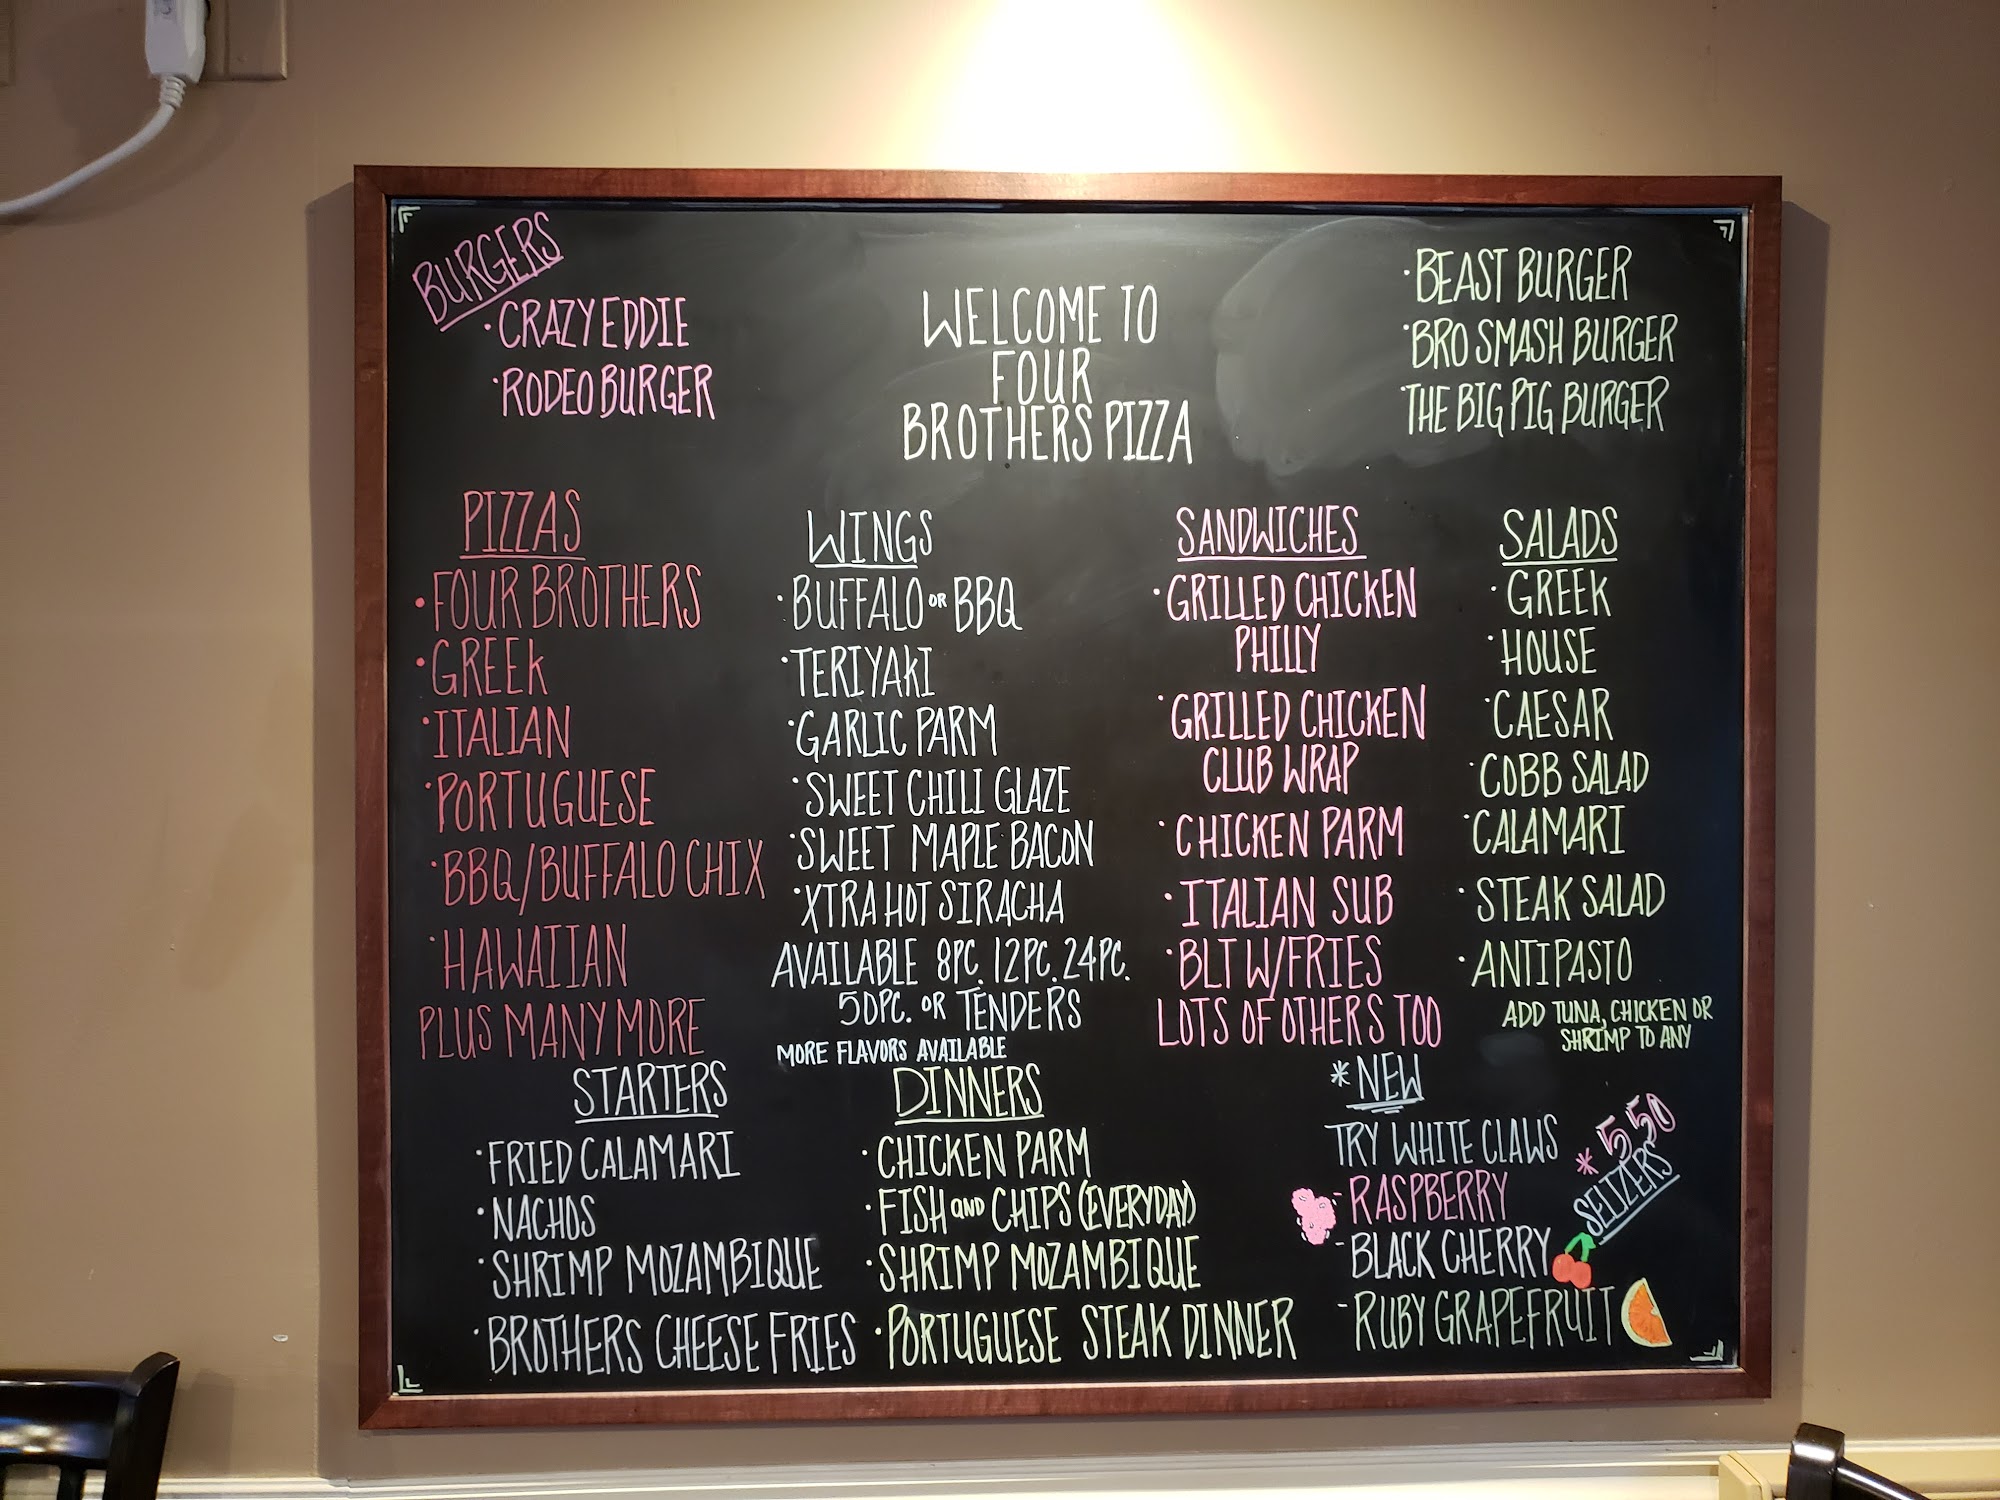 BURGERS
· CRAZY EDDIE
· RODEO BURGER
WELCOME TO
FOUR
BROTHERS PIZZA
· BEAST BURGER
· BRO SMASH BURGER
· THE BIG PIG BURGER
PIZZAS
· FOUR BROTHERS
· GREEK
· ITALIAN
· PORTUGUESE
· BBQ/BUFFALO CHIX
· HAWAIIAN
PLUS MANY MORE
WINGS
· BUFFALO OR BBQ
· TERIYAKI
· GARLIC PARM
· SWEET CHILI GLAZE
· SWEET MAPLE BACON
· XTRA HOT SIRACHA
AVAILABLE 8PC. 12PC. 24PC.
50PC. OR TENDERS
MORE FLAVORS AVAILABLE
SANDWICHES
· GRILLED CHICKEN
PHILLY
· GRILLED CHICKEN
CLUB WRAP
· CHICKEN PARM
· ITALIAN SUB
· BLT W/FRIES
LOTS OF OTHERS TOO
SALADS
· GREEK
· HOUSE
· CAESAR
· COBB SALAD
· CALAMARI
· STEAK SALAD
· ANTIPASTO
ADD TUNA, CHICKEN OR
SHRIMP TO ANY
STARTERS
· FRIED CALAMARI
· NACHOS
· SHRIMP MOZAMBIQUE
· BROTHERS CHEESE FRIES
DINNERS
· CHICKEN PARM
· FISH AND CHIPS (EVERYDAY)
· SHRIMP MOZAMBIQUE
· PORTUGUESE STEAK DINNER
* NEW
TRY WHITE CLAWS
- RASPBERRY
- BLACK CHERRY
- RUBY GRAPEFRUIT
* 5.50
SELTZERS